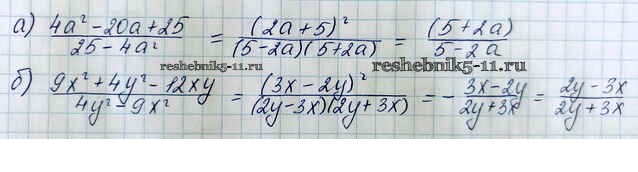 а) (4a² - 20a + 25)/(25 - 4a²) = (2a + 5)²/((5 - 2a)(5 + 2a)) = (5 + 2a)/(5 - 2a)
reshebnik5-11.ru
reshebnik5-11.ru
б) (9x² + 4y² - 12xy)/(4y² - 9x²) = (3x - 2y)²/((2y - 3x)(2y + 3x)) = - (3x - 2y)/(2y + 3x) = (2y - 3x)/(2y + 3x)